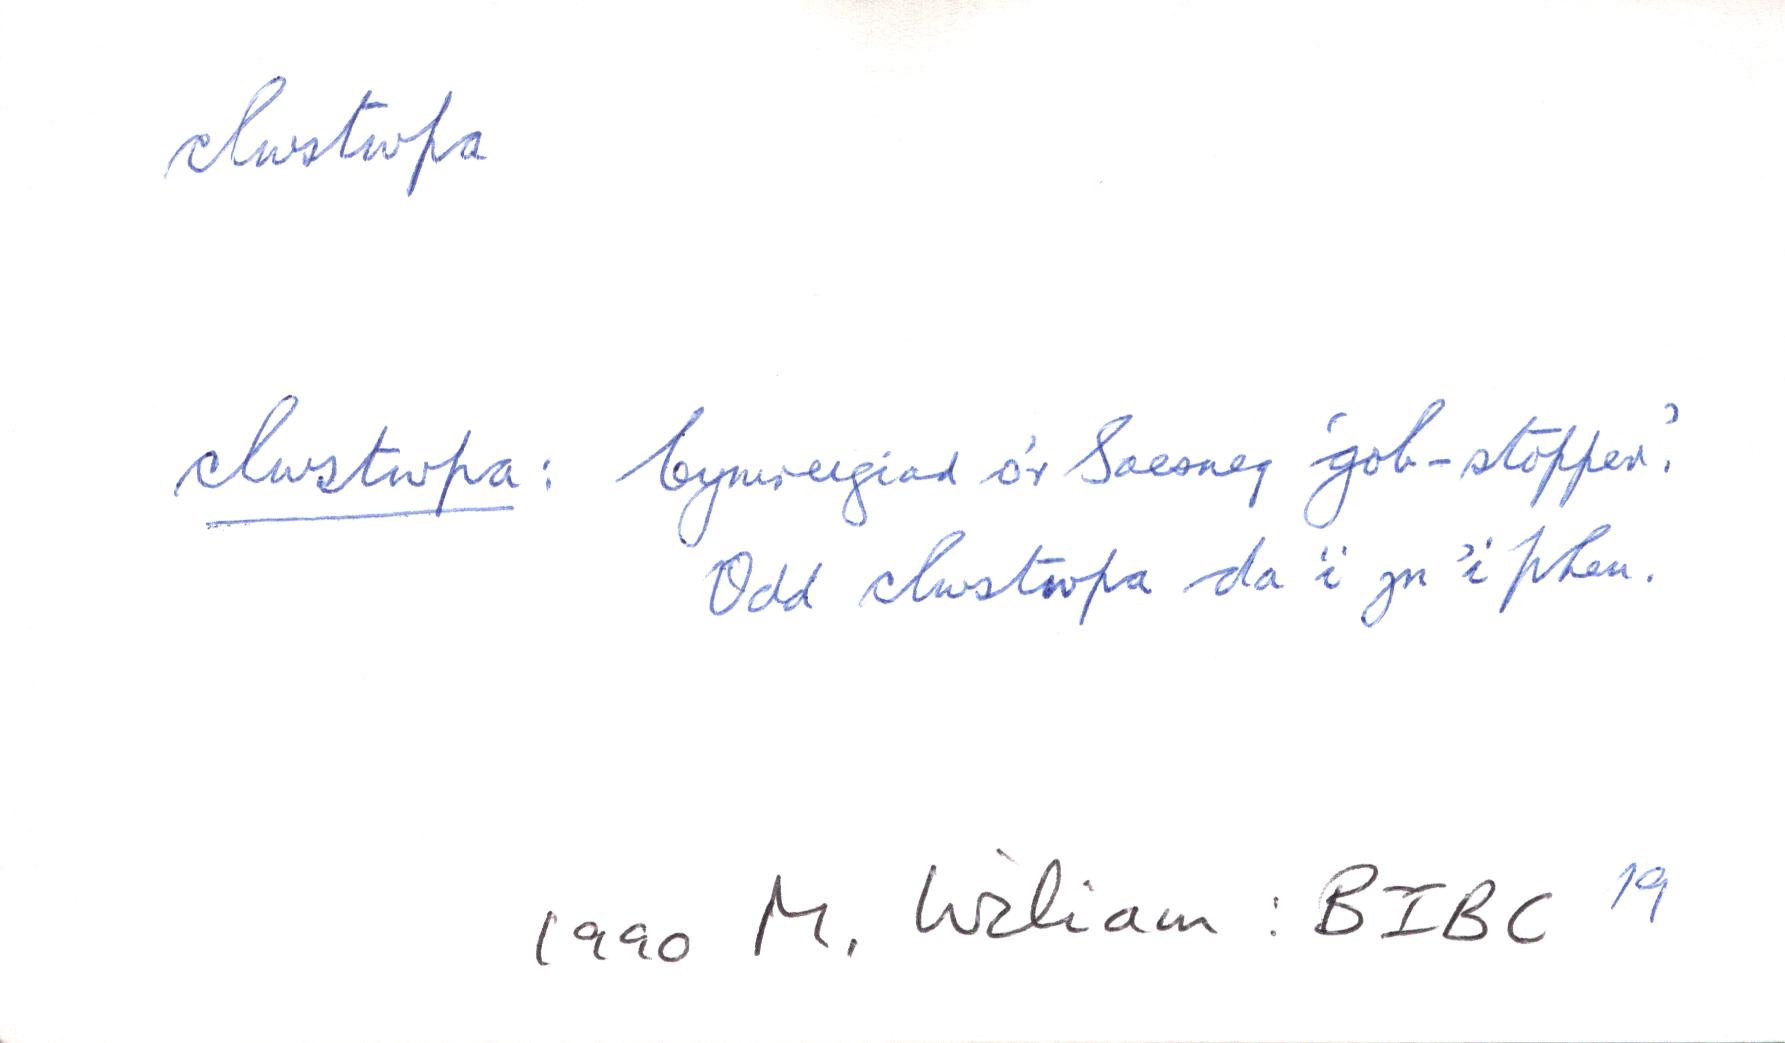 clwstwpa
clwstwpa: Cymreigiad o'r Saesneg 'gob-stopper'.
Odd clwstwpa da 'i yn 'i phen.
1990 M. Wiliam : BIBC 19